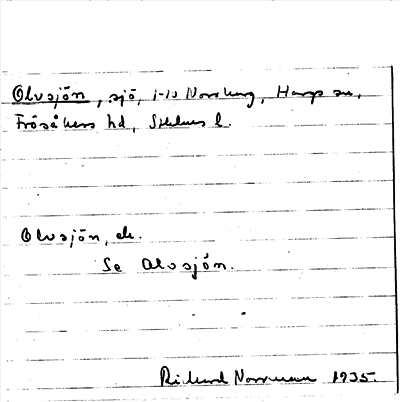 Olvsjön, sjö, i Norrskog, Hargs sn,
Frösåkers hd, Sthlms l.
Olvsjön, ek.
Se Alvsjön.
Rickard Norrman 1935.